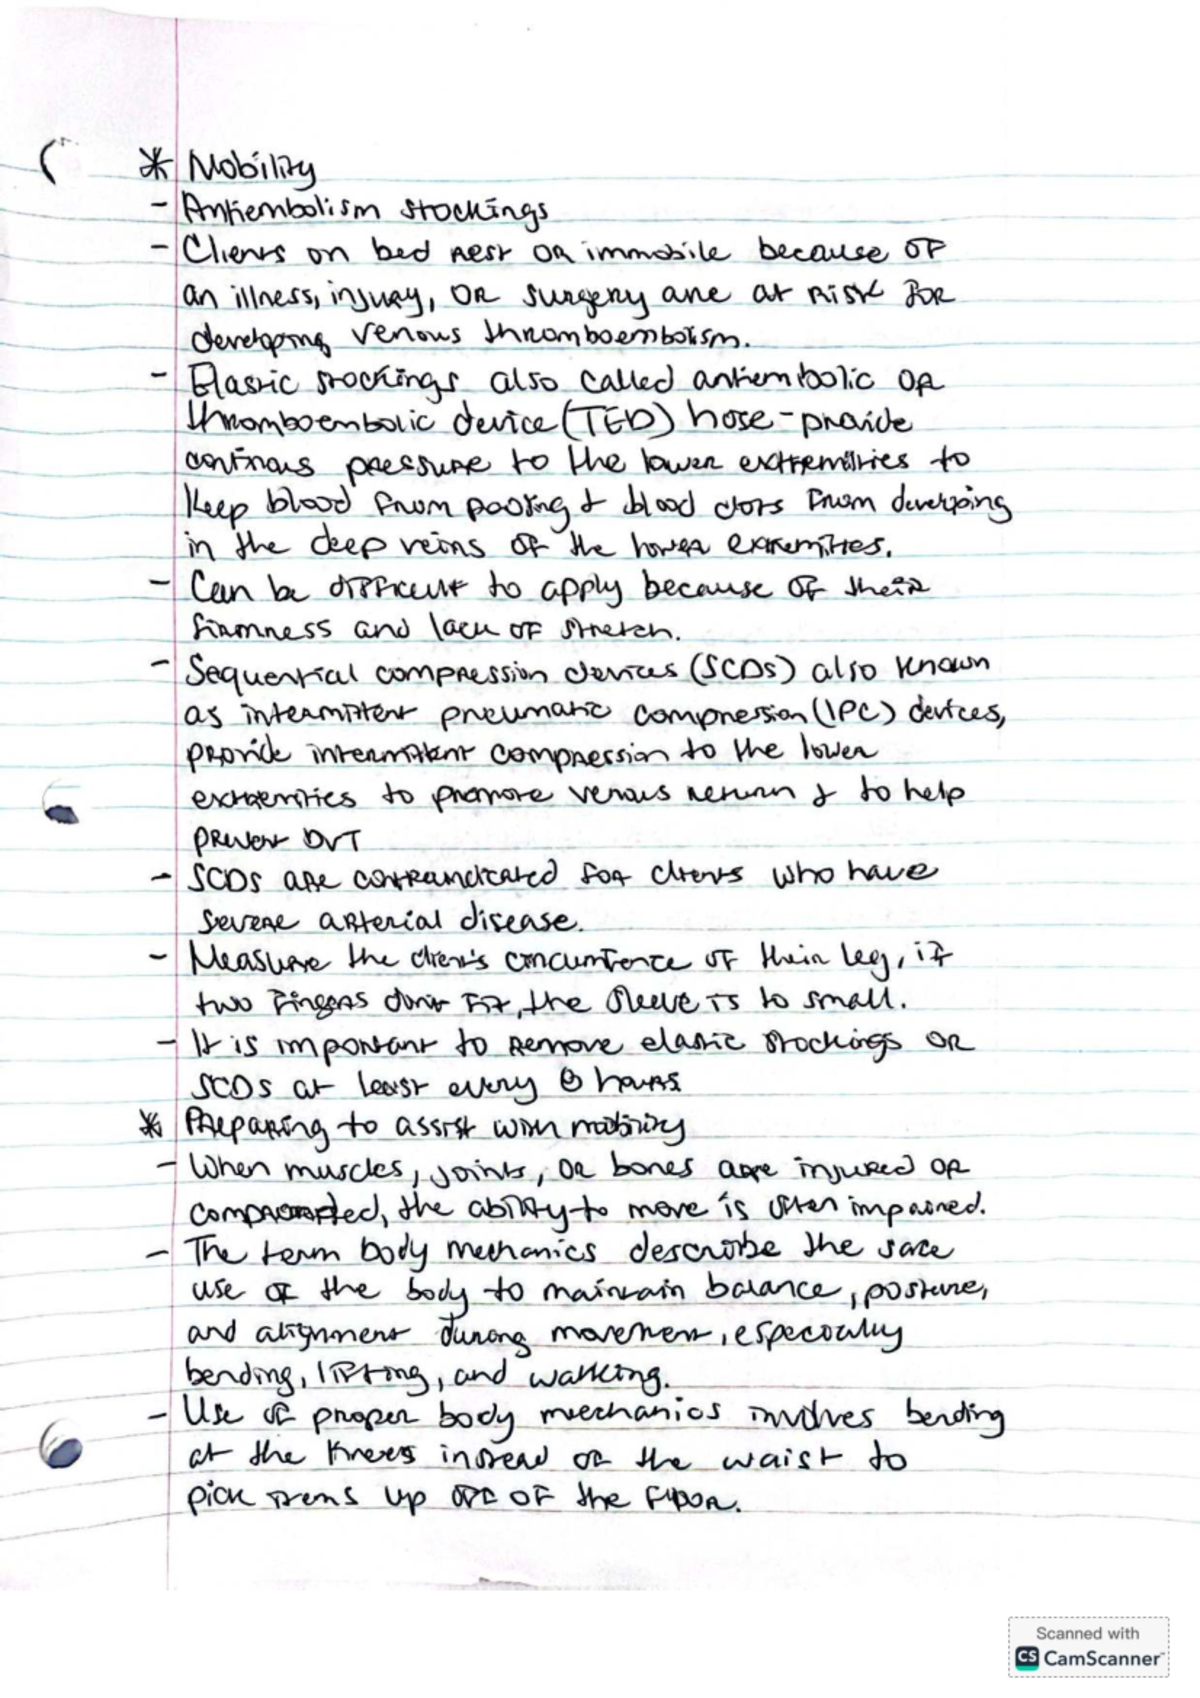 * Mobility
- Antiembolism stockings
- Clients on bed rest OR immobile because of
an illness, injury, OR surgery are at risk for
developing venous thromboembolism.
- Elastic stockings also called antiembolic OR
thromboembolic device (TED) hose - provide
continous pressure to the lower extremities to
keep blood from pooling & blood clots from developing
in the deep veins of the lower extremities.
- Can be difficult to apply because of their
firmness and lack of stretch.
- Sequential compression devices (SCDs) also known
as intermittent pneumatic compression (IPC) devices,
provide intermittent compression to the lower
extremities to promote venous return & to help
prevent DVT
- SCDs are contraindicated for clients who have
severe arterial disease.
- Measure the client's circumfrence of their leg, if
two fingers don't fit, the sleeve is to small.
- It is important to remove elastic stockings OR
SCDs at least every 8 hours
* Preparing to assist with mobility
- When muscles, joints, OR bones are injured OR
the ability to move is often impaired.
- The term body mechanics describe the safe
use of the body to maintain balance, posture,
and alignment during movement, especially
bending, lifting, and walking.
- Use of proper body mechanics involves bending
at the knees instead of the waist to
pick items up off of the floor.
Scanned with
CS CamScanner